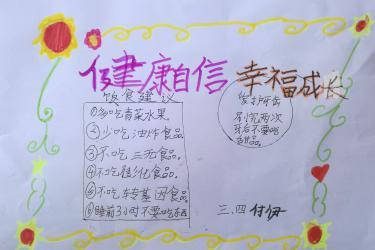 健康自信 幸福成长
饮食建议
①多吃青菜水果.
②少吃油炸食品.
③不吃三无食品.
④不吃膨化食品.
⑤不吃转基因食品
⑥睡前3小时不要吃东西
爱护牙齿
早晚两次
牙后不要吃
甜品.
三、四 付伊